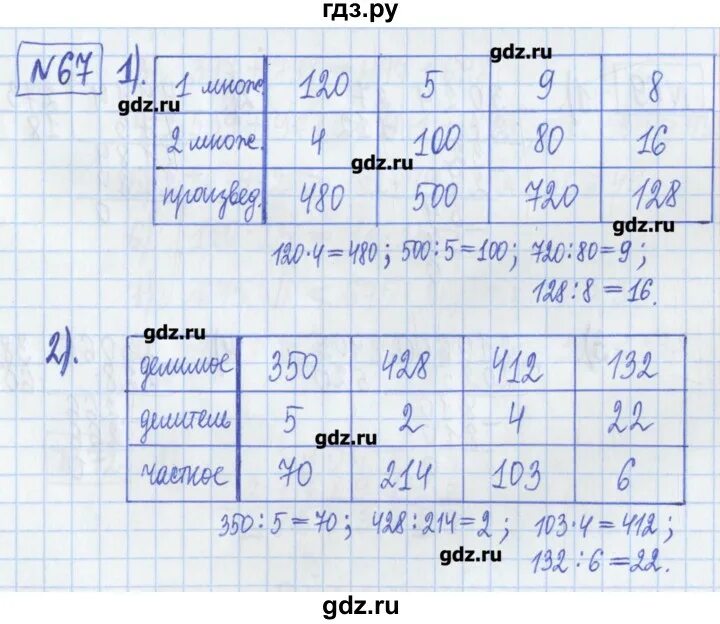 гдз.ру
№67 1).
1 множ. 120 5 9 8
2 множ. 4 100 80 16
произвед. 480 500 720 128
120·4=480; 500:5=100; 720:80=9;
128:8=16.
2).
делимое 350 428 412 132
делитель 5 2 4 22
частное 70 214 103 6
350:5=70; 428:214=2; 103·4=412;
132:6=22.
gdz.ru
gdz.ru
gdz.ru
gdz.ru
gdz.ru
gdz.ru
gdz.ru
gdz.ru